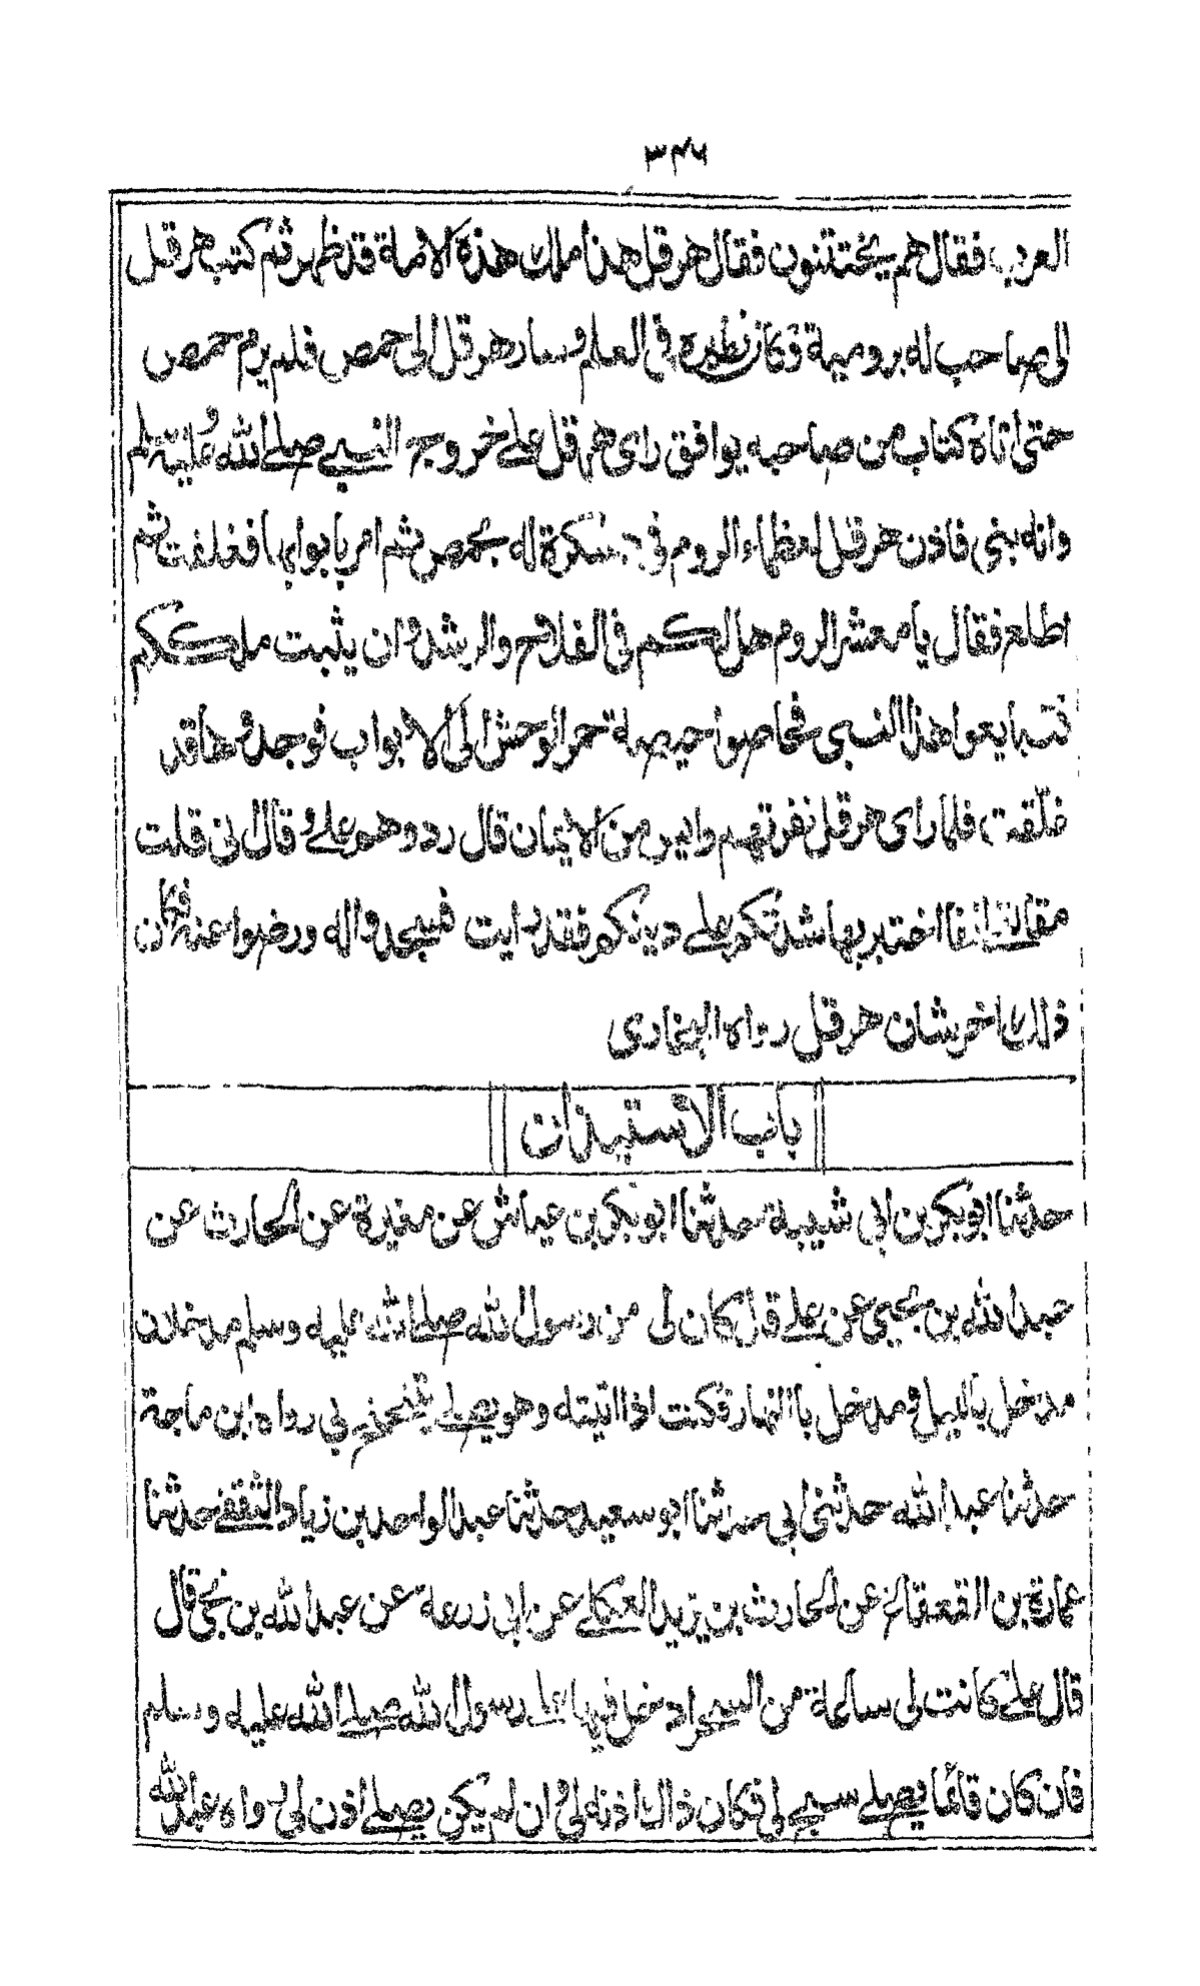 ۳۴۶
العرب فقال هم يختتنون فقال هرقل هذا ملك هذه الامة قد ظهر ثم كتب هرقل
الى صاحب له برومية وكان نظيره في العلم وسار هرقل الى حمص فلم يرم حمص
حتى اتاه كتاب من صاحبه يوافق راى هرقل على خروج النبي صلى الله عليه وسلم
وانه نبي فاذن هرقل لعظماء الروم في دسكرة له بحمص ثم امر بابوابها فغلقت ثم
اطلع فقال يا معشر الروم هل لكم في الفلاح والرشد وان يثبت ملككم
فتبايعوا هذا النبي فحاصوا حيصة حمر الوحش الى الابواب فوجدوها قد
غلقت فلما راى هرقل نفرتهم وايس من الايمان قال ردوهم على وقال انى قلت
مقالتي انفا اختبر بها شدتكم على دينكم فقد رايت فسجدوا له ورضوا عنه فكان
ذلك اخر شان هرقل رواه البخارى
باب الاستيذان
حدثنا ابوبكر بن ابى شيبة حدثنا ابوبكر بن عياش عن مغيرة عن الحارث عن
عبد الله بن نجيي عن على قال كان لى من رسول الله صلى الله عليه وسلم مدخلان
مدخل بالليل ومدخل بالنهار فكنت اذا اتيته وهو يصلى يتنحنح لى رواه ابن ماجة
حدثنا عبد الله حدثنى ابي حدثنا ابو سعيد حدثنا عبد الواحد بن زياد الثقفي حدثنا
عمارة بن القعقاع عن الحارث بن يزيد العكلي عن ابى زرعة عن عبد الله بن نجى قال
قال على كانت لى ساعة من السحر ادخل فيها على رسول الله صلى الله عليه وسلم
فان كان قائما يصلى سبح لى فكان ذاك اذنه لى وان لم يكن يصلى اذن لى رواه عبد الله